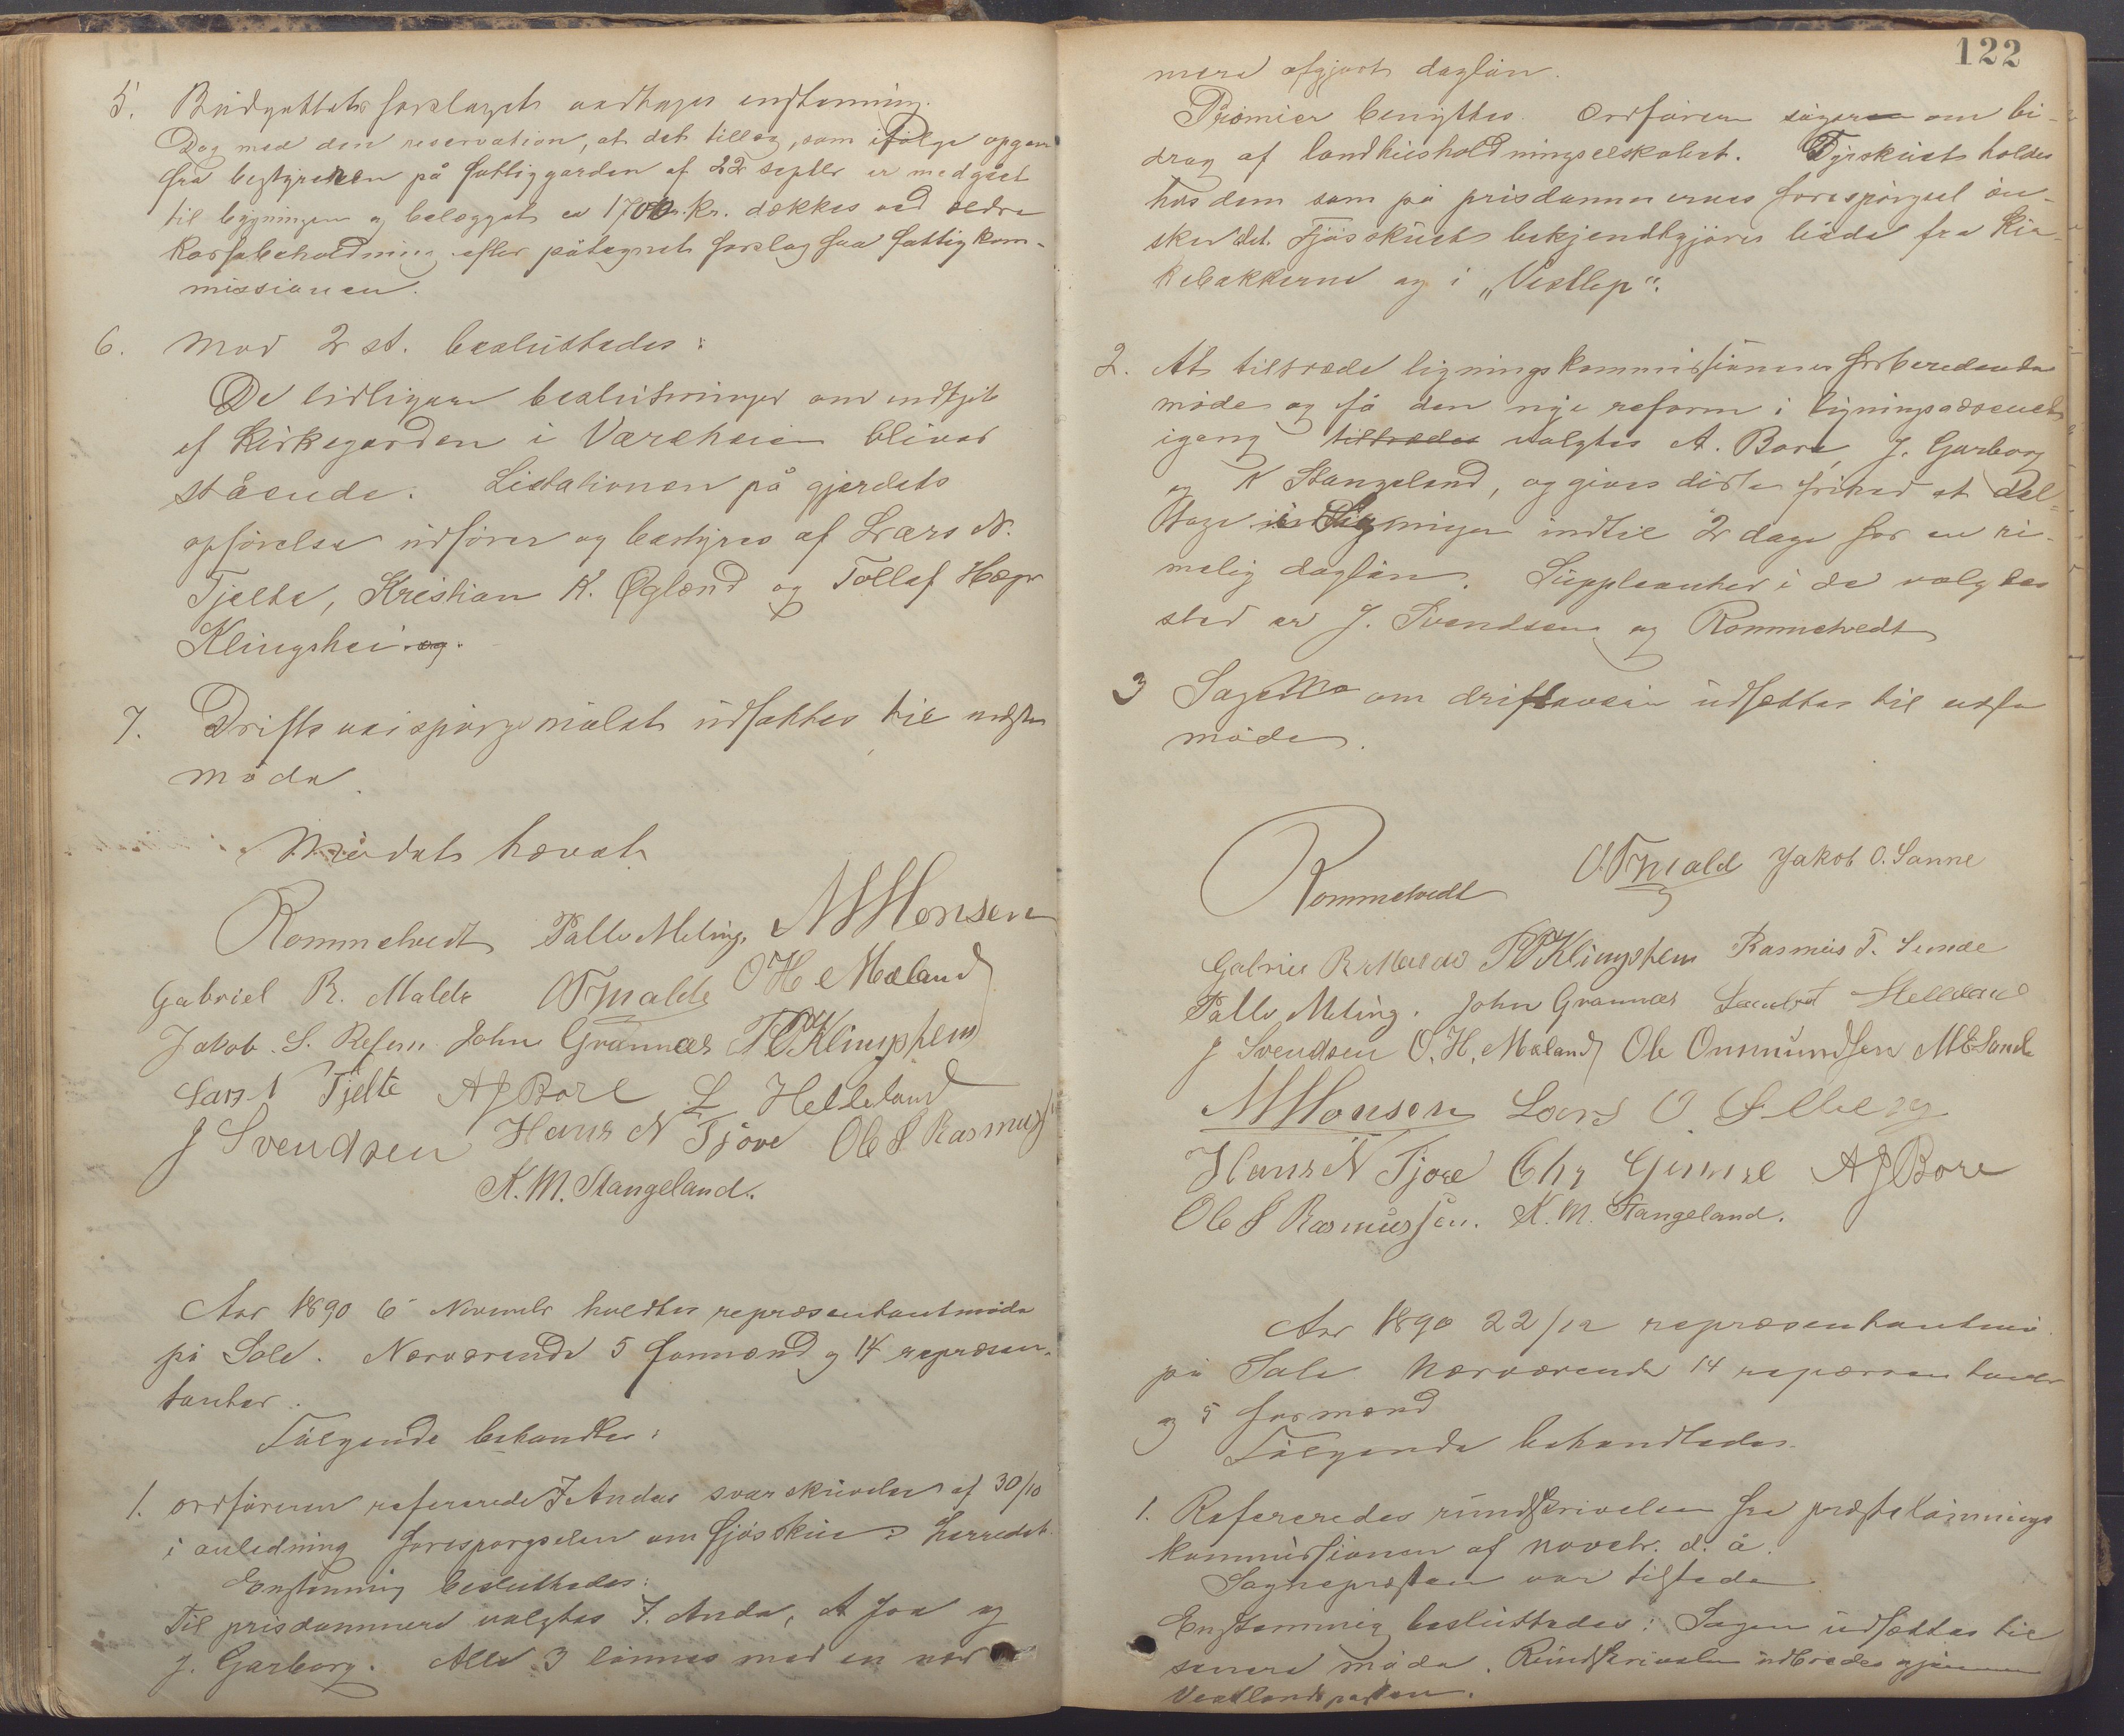 5. Budgettets forslaget vedtages enstemmig.
Dog med den reservation, at det tillæg, som ifølge opgave
fra bestyreren på fattiggarden af 22 septbr er medgået
til bygningen og belægget ca 1700 kr. dækkes ved ældre
kassabeholdning efter påtegnet forslag fra fattigkom-
missionen.
6. Mod 2 st. besluttedes:
De tidligere beslutninger om indkjøb
af Kirkegarden i Vareheien bliver
stående. Licitationen på gjerdets
opførelse udføres og bestyres af Lars N.
Tjelta, Kristian K. Øglend og Tollef
Klingshei
7. Driftsveispørgsmålet udsættes til næste
møde.
Mødet hævet
Rommetvedt Palle Meling. M Monsen
Gabriel R. Malde O T Malde O H Mæland
Jakob S. Refsn John Grannæs Klingshem
Lars N Tjelte A J Bore L Helleland
J Svendsen Hans N Tjore Ole S Rasmuss
K. M. Stangeland.
Aar 1890 6 Novembr holdtes repræsentantmøde
på Sole. Nærværende 5 formænd og 14 repræsen-
tanter.
Følgende behandles:
1. ordføreren refererede J Andas svarskrivelse af 30/10
i anledning forespørgselen om fjøsskue i herredet.
Enstemmig besluttedes:
Til prisdommere valgtes J. Anda, A Joa og
J. Garborg. Alle 3 lønnes med en nær
122
mere afgjort dagløn.
Præmier benyttes. Ordføreren søger om bi-
drag af landhusholdningselskabet. Dyrskuet holdes
hos dem som på prisdommernes forespørgsel øn-
sker det. Fjøsskuet bekjendtgjøres både fra Kir-
kebakkerne og i „Vestlp".
2. At tiltræde ligningskommissionens forberedende
møde og få den nye reform i ligningsvæsenet
igang tiltrædes valgtes A. Bore, J. Garborg
og K Stangeland, og gives disse frihed at del-
tage i Ligningen indtil 2 dage for en ri-
melig dagløn. Suppleanter i de valgtes
sted er J. Svendsen og Rommetvedt
3 Sagen om driftsveien udsættes til næste
møde.
Rommetvedt O. T Malde Jakob O. Sanne
Gabriel R Malde Klingshem Rasmus T. Sunde
Palle Meling. John Grannæs Helleland
J Svendsen O. H. Mæland Ole Onnundsen M E Sande
M Monsen Lars O.
Hans N Tjore Chr Gimre A J Bore
Ole S Rasmussen. K. M. Stangeland.
Aar 1890 22/12 repræsentantmø
på Sole Nærværende 14 repræsentanter
og 5 formænd
Følgende behandledes.
1. Refereredes rundskrivelsen fra præstelønnings
kommissionen af novbr. d. å.
Sognepræsten var tilstede
Enstemmig besluttedes: Sagen udsættes til
senere møde. Rundskrivelsen udbredes gjennem
Vestlandsposten.